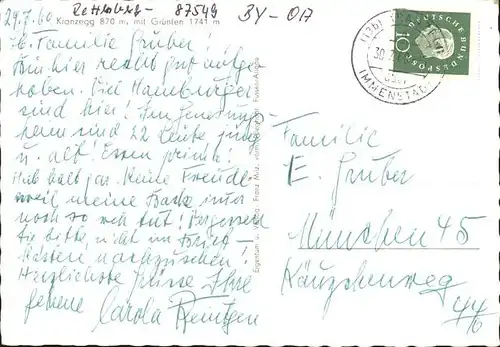 29.7.60
Rettenberg - 87549 BY-OA
Kranzegg 870 m, mit Grünten 1741 m
lb. Familie Gruber!
Bin hier recht gut aufge-
hoben. Viel Hamburger
sind hier! Im
heim sind 22 Leute jung
u. alt! Essen prima!
Hab halt gar keine Freude
weil meine Backe immer
noch so weh tut! Vergessen
Sie bitte nicht im Brief-
kasten nachzuschauen!
Herzlichste Grüsse Ihre
Carola Remtgen
Eigentum u. Verlag: Franz Milz
DEUTSCHE BUNDESPOST
10
IMMENSTADT
Familie
E. Gruber
München 45
Käuzchenweg
44b